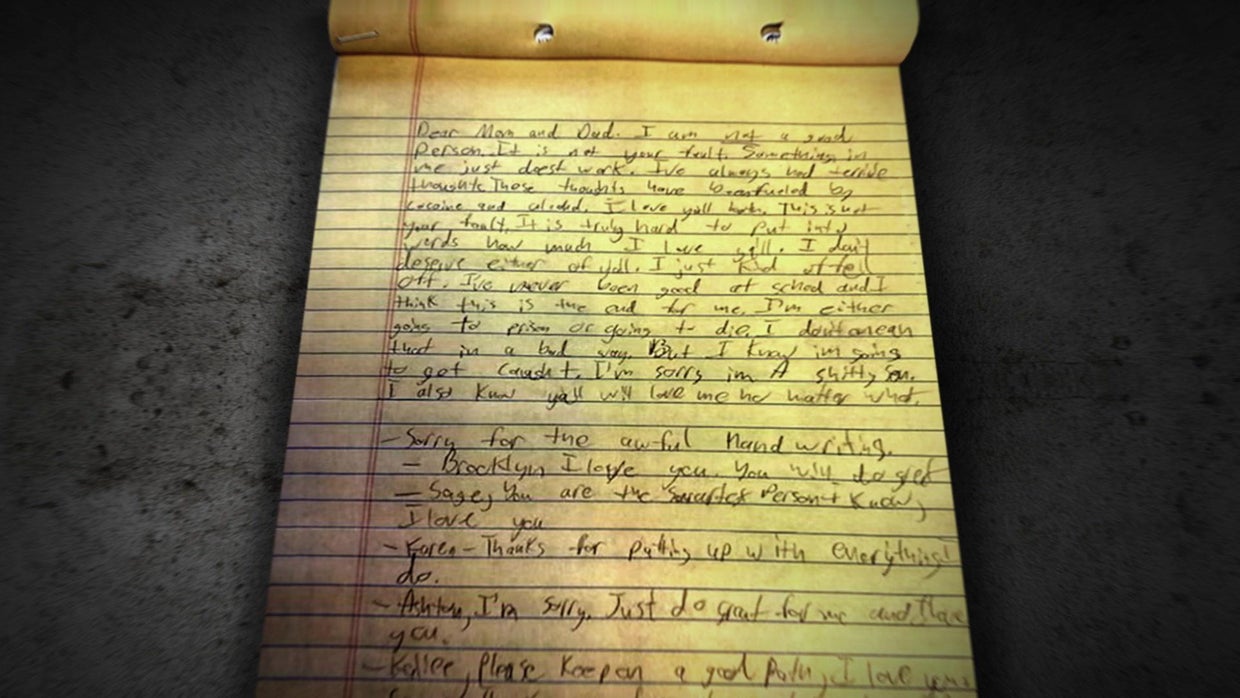 Dear Mom and Dad. I am not a good
person. It is not your fault. Something in
me just doest work. I've always had terrible
thoughts. These thoughts have been fueled by
cocaine and alcohol. I love yall both. This is not
your fault. It is truly hard to put into
words how much I love yall. I don't
deserve either of yall. I just kind of fell
off. I've never been good at school and I
think this is the end for me. I'm either
going to prison or going to die. I dont mean
that in a bad way. But I know im going
to get caught. I'm sorry im A shitty son.
I also know yall will love me no matter what.
- Sorry for the awful Handwriting.
- Brooklyn I love you. You will do
- Sage, You are the smartest Person I know,
I love you
- Karen - Thanks for putting up with everything I
do.
- Ashton, I'm sorry. Just do great for me and I love
you.
- Kaliee, please keep on a good path, I love you